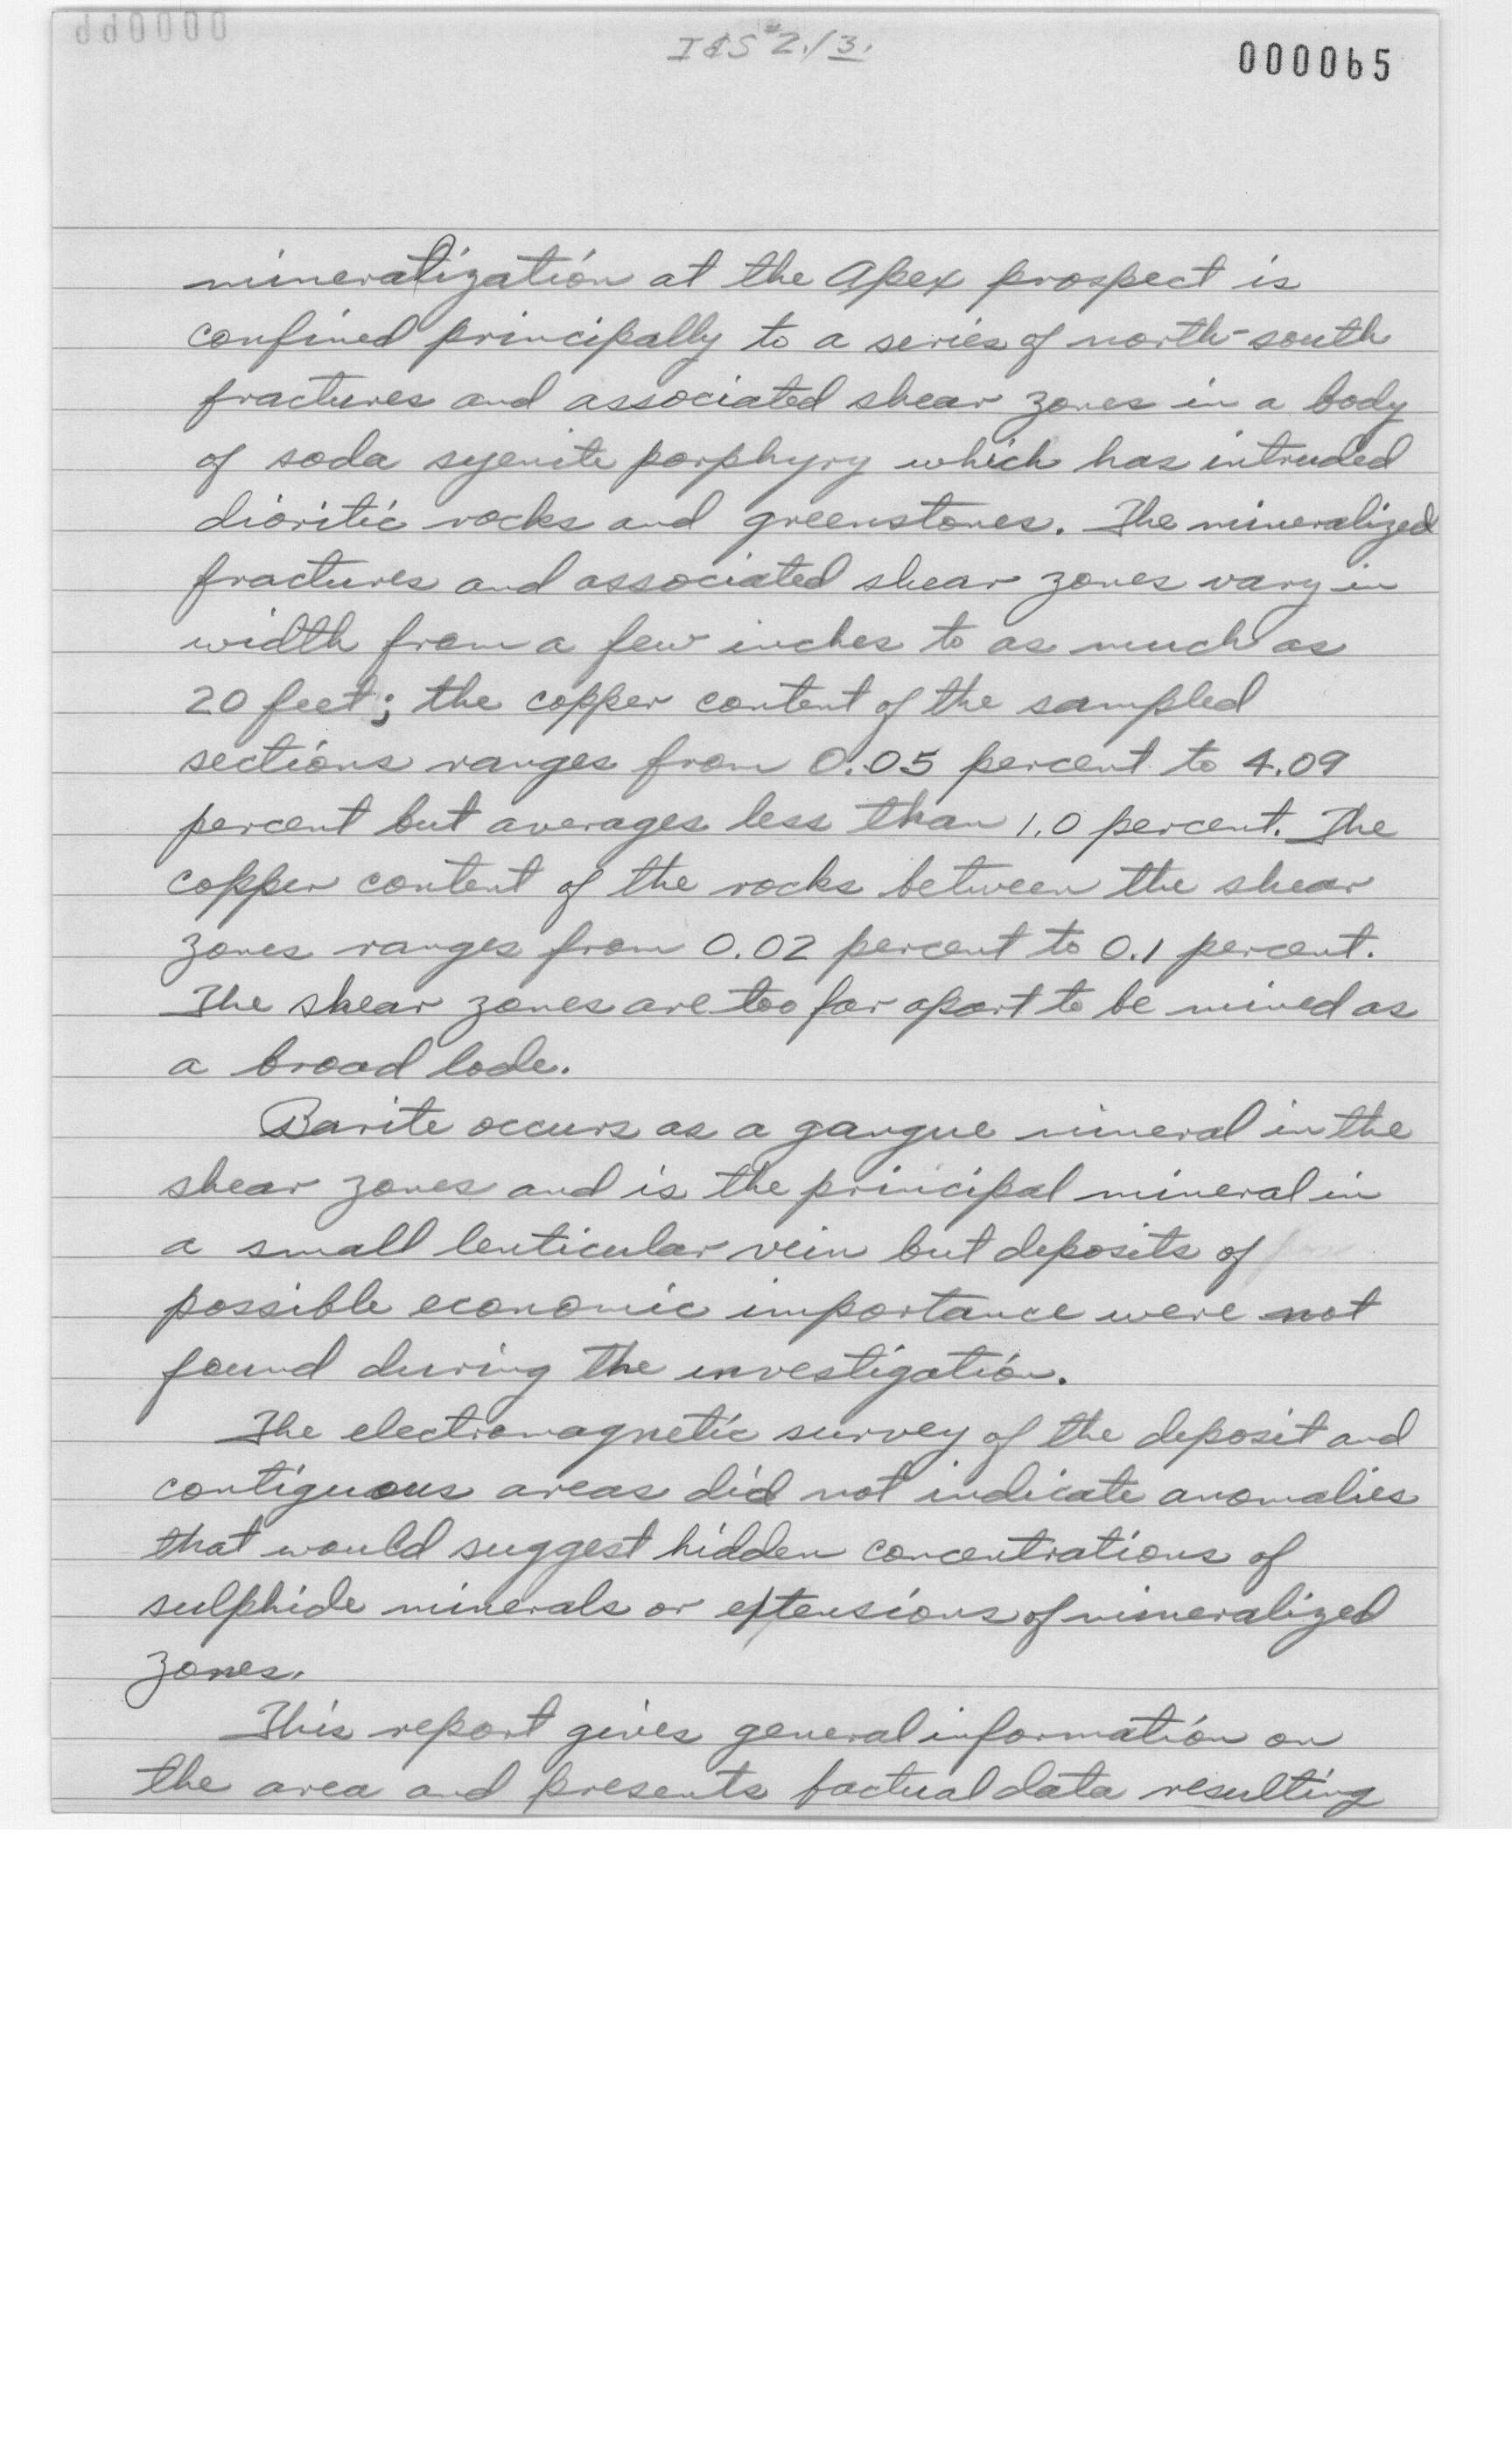 I&S #2./3.
000065
mineralization at the Apex prospect is
confined principally to a series of north-south
fractures and associated shear zones in a body
of soda syenite porphyry which has intruded
dioritic rocks and greenstones. The mineralized
fractures and associated shear zones vary in
width from a few inches to as much as
20 feet; the copper content of the sampled
sections ranges from 0.05 percent to 4.09
percent but averages less than 1.0 percent. The
copper content of the rocks between the shear
zones ranges from 0.02 percent to 0.1 percent.
The shear zones are too far apart to be mined as
a broad lode.
Barite occurs as a gangue mineral in the
shear zones and is the principal mineral in
a small lenticular vein but deposits of
possible economic importance were not
found during the investigation.
The electromagnetic survey of the deposit and
contiguous areas did not indicate anomalies
that would suggest hidden concentrations of
sulphide minerals or extensions of mineralized
zones.
This report gives general information on
the area and presents factual data resulting